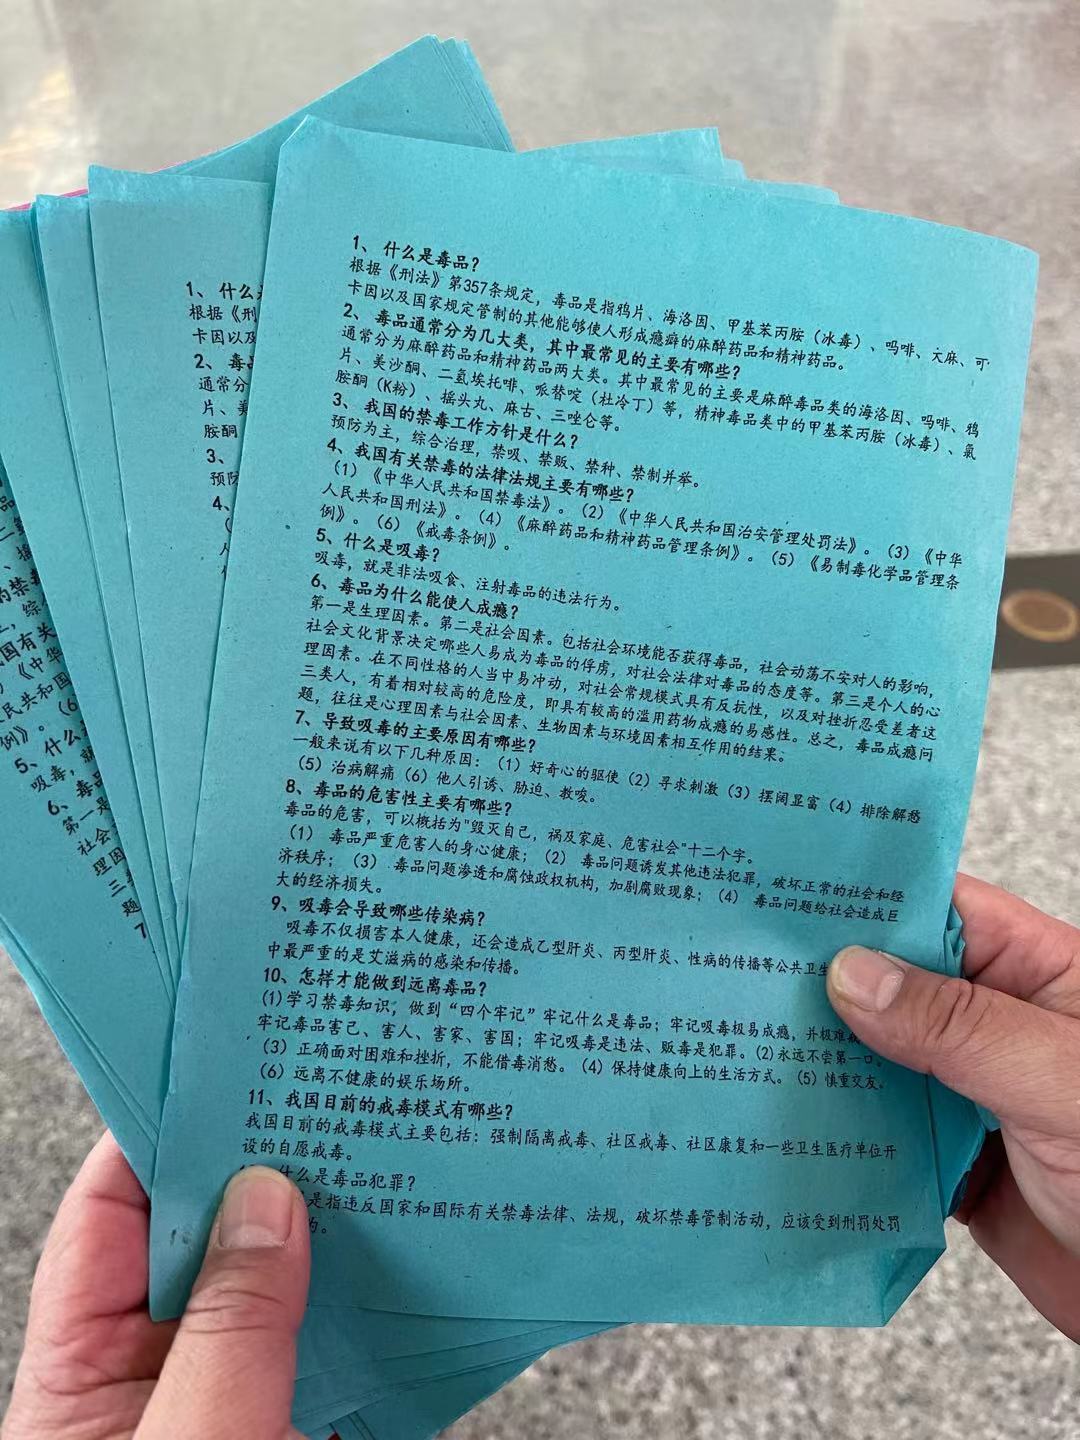 1、 什么是毒品？
根据《刑法》第357条规定，毒品是指鸦片、海洛因、甲基苯丙胺（冰毒）、吗啡、大麻、可
卡因以及国家规定管制的其他能够使人形成瘾癖的麻醉药品和精神药品。
2、 毒品通常分为几大类，其中最常见的主要有哪些？
通常分为麻醉药品和精神药品两大类。其中最常见的主要是麻醉毒品类的海洛因、吗啡、鸦
片、美沙酮、二氢埃托啡、哌替啶（杜冷丁）等，精神毒品类中的甲基苯丙胺（冰毒）、氯
胺酮（K粉）、摇头丸、麻古、三唑仑等。
3、 我国的禁毒工作方针是什么？
预防为主，综合治理，禁吸、禁贩、禁种、禁制并举。
4、我国有关禁毒的法律法规主要有哪些？
（1）《中华人民共和国禁毒法》。（2）《中华人民共和国治安管理处罚法》。（3）《中华
人民共和国刑法》。（4）《麻醉药品和精神药品管理条例》。（5）《易制毒化学品管理条
例》。（6）《戒毒条例》。
5、什么是吸毒？
吸毒，就是非法吸食、注射毒品的违法行为。
6、毒品为什么能使人成瘾？
第一是生理因素。第二是社会因素。包括社会环境能否获得毒品，社会动荡不安对人的影响，
社会文化背景决定哪些人易成为毒品的俘虏，对社会法律对毒品的态度等。第三是个人的心
理因素。在不同性格的人当中易冲动，对社会常规模式具有反抗性，以及对挫折忍受差者这
三类人，有着相对较高的危险度，即具有较高的滥用药物成瘾的易感性。总之，毒品成瘾问
题，往往是心理因素与社会因素、生物因素与环境因素相互作用的结果。
7、导致吸毒的主要原因有哪些？
一般来说有以下几种原因：（1）好奇心的驱使（2）寻求刺激（3）摆阔显富（4）排除解愁
（5）治病解痛（6）他人引诱、胁迫、教唆。
8、毒品的危害性主要有哪些？
毒品的危害，可以概括为"毁灭自己，祸及家庭、危害社会"十二个字。
（1） 毒品严重危害人的身心健康；（2） 毒品问题诱发其他违法犯罪，破坏正常的社会和经
济秩序；（3）.毒品问题渗透和腐蚀政权机构，加剧腐败现象；（4） 毒品问题给社会造成巨
大的经济损失。
9、吸毒会导致哪些传染病？
吸毒不仅损害本人健康，还会造成乙型肝炎、丙型肝炎、性病的传播等公共卫生
中最严重的是艾滋病的感染和传播。
10、怎样才能做到远离毒品？
(1)学习禁毒知识，做到“四个牢记”牢记什么是毒品；牢记吸毒极易成瘾，并极难
牢记毒品害己、害人、害家、害国；牢记吸毒是违法、贩毒是犯罪。(2)永远不尝第一口。
（3）正确面对困难和挫折，不能借毒消愁。（4）保持健康向上的生活方式。（5）慎重交友。
（6）远离不健康的娱乐场所。
11、我国目前的戒毒模式有哪些？
我国目前的戒毒模式主要包括：强制隔离戒毒、社区戒毒、社区康复和一些卫生医疗单位开
设的自愿戒毒。
什么是毒品犯罪？
是指违反国家和国际有关禁毒法律、法规，破坏禁毒管制活动，应该受到刑罚处罚
的。
1、 什么
根据《刑
卡因以及
2、 毒品
通常分
片、美
胺酮
3、
预防
4、
的禁毒
，综
国有关
《中华
民共和国
例》。（6
5、什么
吸毒，就
6、毒品
第一是
社会
理因
三
题
7